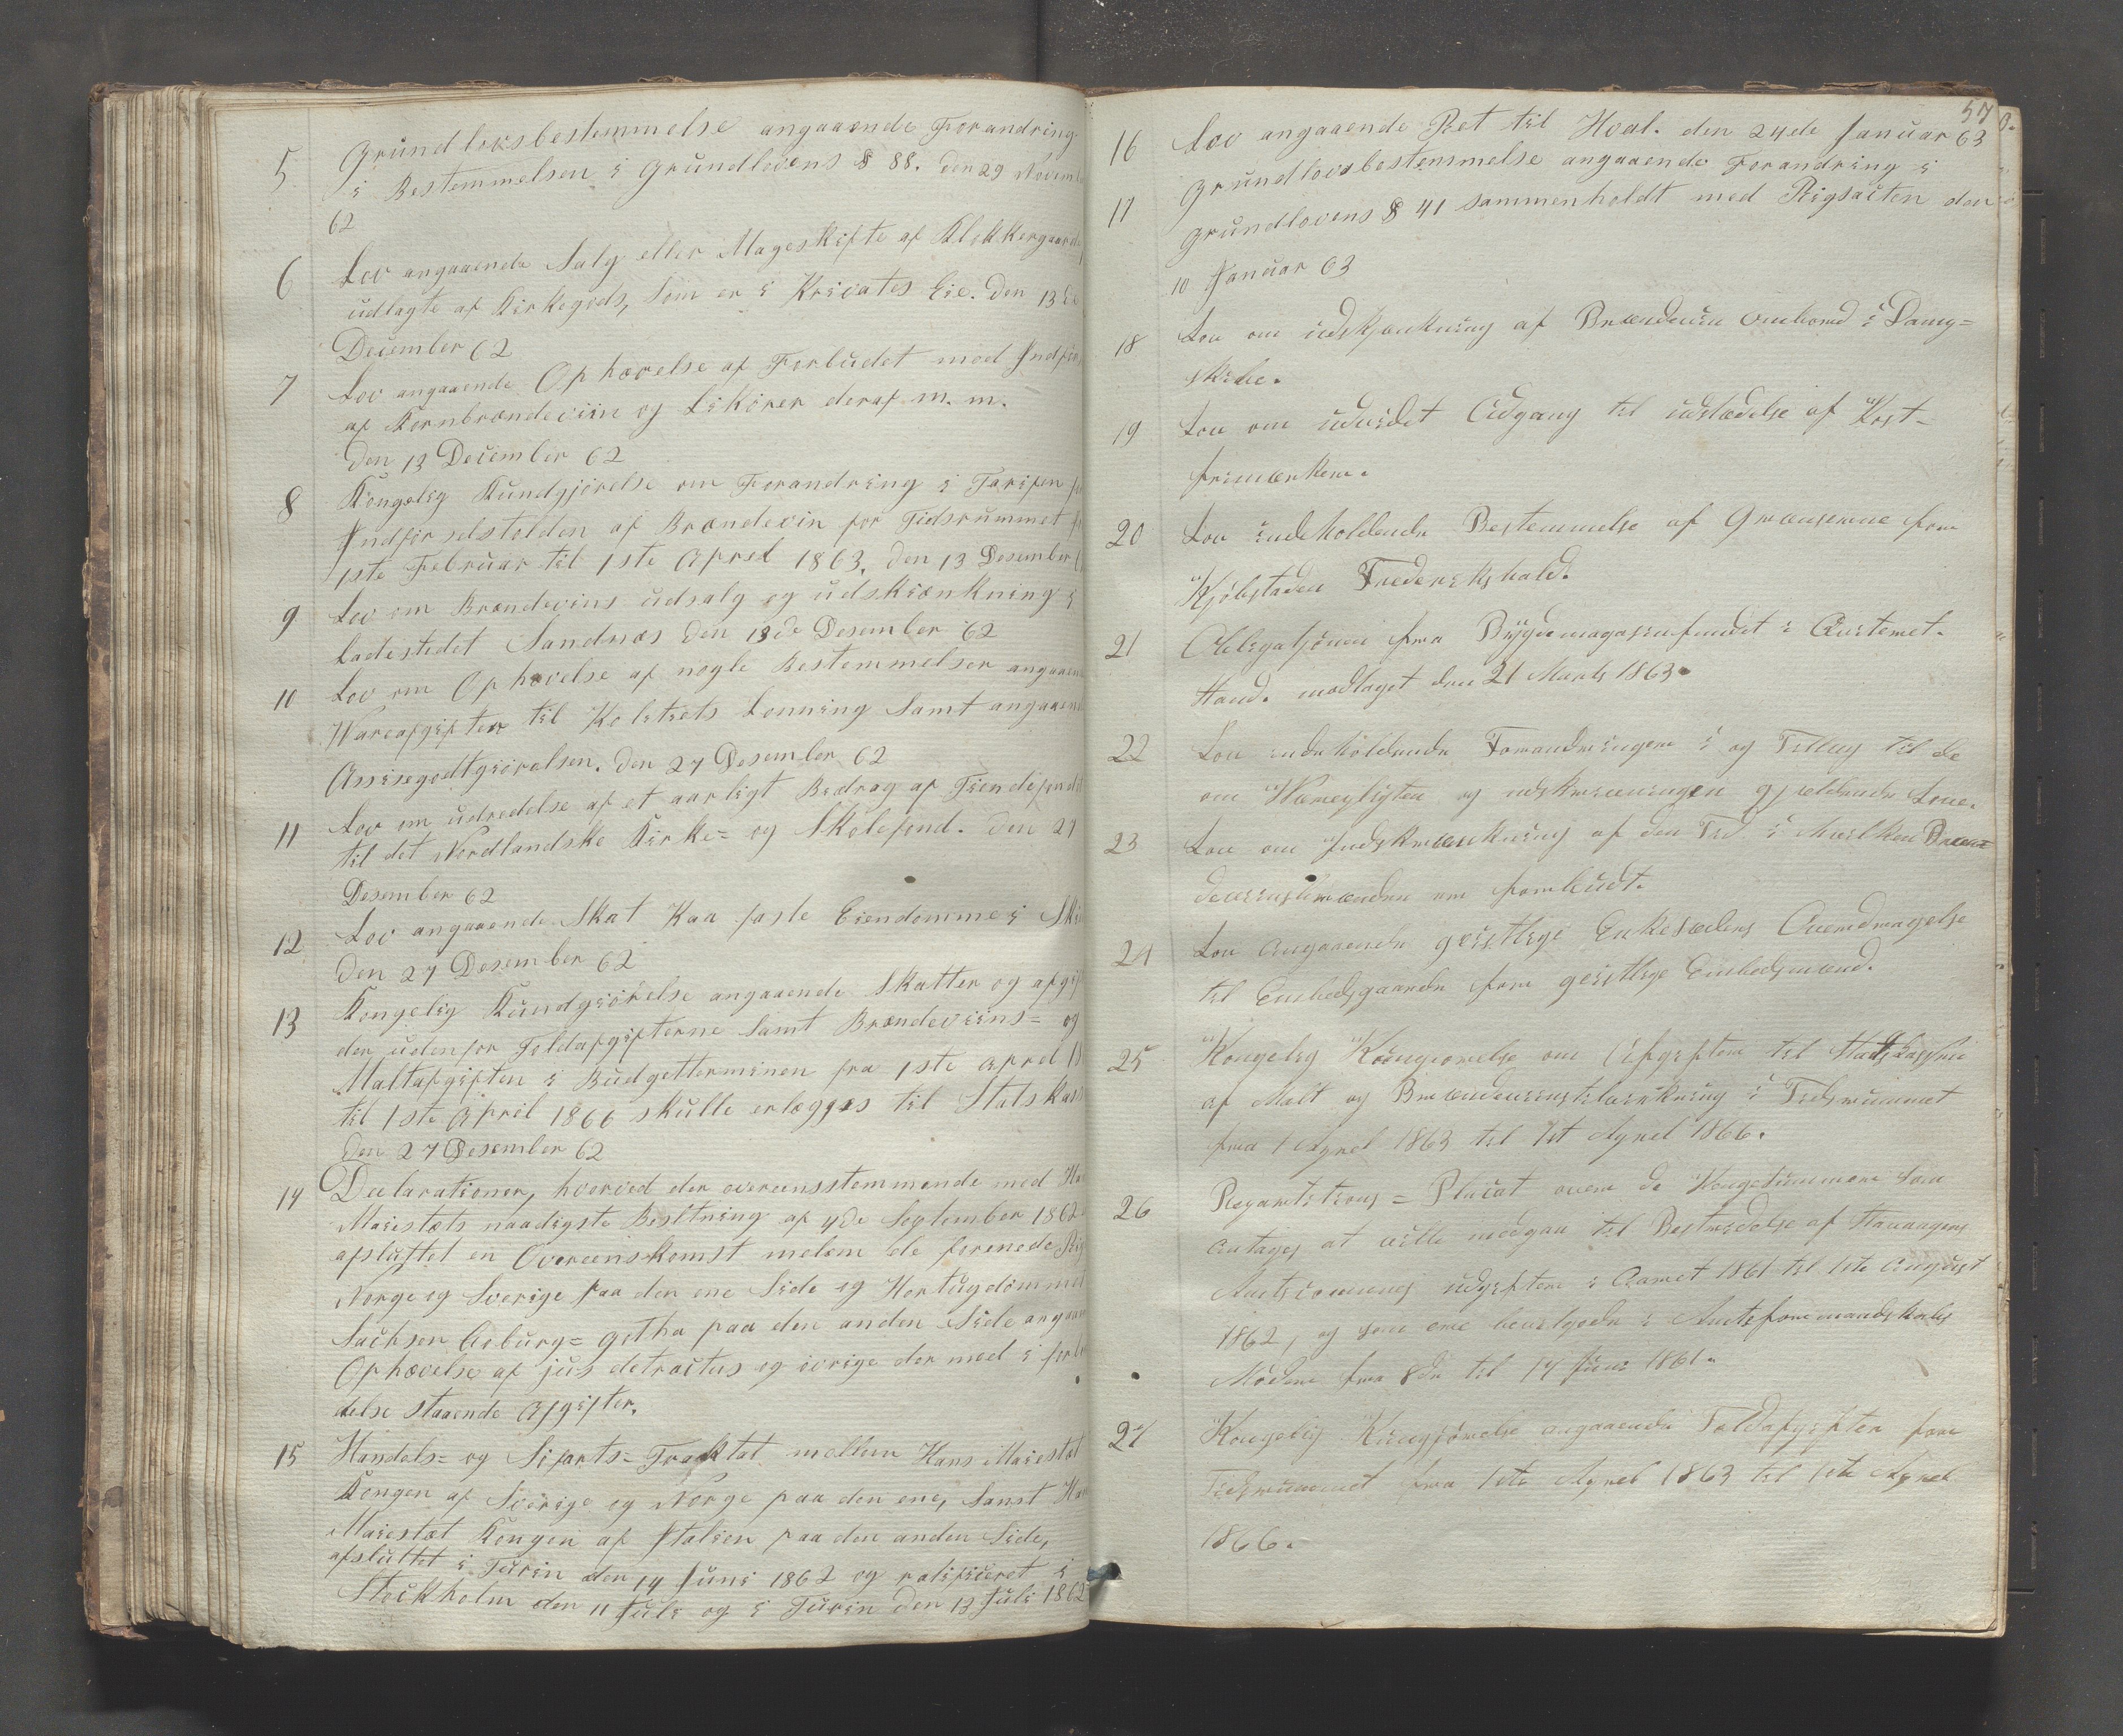 5 Grundlovsbestemmelse angaaende Forandring
i Bestemmelsen i Grundlovens § 88. den 29 Novemb
62
6 Lov angaaende Salg eller Mageskifte af Klokkergaarde
udlagte af Kirkegods, Som er i Privates Eie. den 13de
December 62
7 Lov angaaende Ophævelse af Forbudet mod Indfør
af Kornbrændeviin og Likører deraf m. m.
den 13 December 62
8 Kongelig Kundgjørelse om Forandring i Tarifen
Indførselstolden af Brændevin for Tidsrummet
1ste Februar til 1ste April 1863. den 13 Desember
9 Lov om Brændevins udsalg og udskiænkning i
Ladestedet Sandnæs den 13de Desember 62
10 Lov om Ophævelse af nogle Bestemmelser angaaen
Vareafgifter til Politiets Lønning Samt angaaen
Assisegodtgiørelsen. den 27 Desember 62
11 Lov om udredelse af et aarligt Bidrag af Tiendefondet
til det Nordlandske Kirke= og Skolefond. den 27
Desember 62
12 Lov angaaende Skat paa faste Eiendomme i Ski
den 27 Desember 62
13 Kongelig Kundgiørelse angaaende Skatter og afgif
der udenfor Toldafgifterne Samt Brændeviins= og
Maltafgiften i Budgetterminen fra 1ste April 18
til 1ste April 1866 skulle erlægges til Statskass
den 27 Desember 62
14 Declarationer, hvorved der overeensstemmende med Ha
Maiestæts naadigste Besltning af 4de September 1862
afsluttet en Overeenskomst melem de forenede Rig
Norge og Sverige paa den ene Side og Hertugdømmet
Sachsen Coburg= gotha paa den anden Side angaae
Ophævelse af jus detractus og øvrige der med i forbi
delse staaende Afgifter.
15 Handels= og Sifarts= Tracktat mellem Hans Maiestæt
Kongen af Sverige og Norge paa den ene, Samt Ha
Maiestæt Kongen af Italien paa den anden Side,
afsluttet i Turin den 14 Juni 1862 og ratificeret i
Stockholm den 11 Juli og i Turin den 13 Juli 1862
57
16 Lov angaaende Ret til Hval. den 24de Januar 63
17 Grundlovsbestemmelse angaaende Forandring i
Grundlovens § 41 sammenholdt med Rigsacten den
10 Januar 63
18 Lov om udskjænkning af Brændeviin ombord i Damp=
skibe.
19 Lov om udvidet Adgang til udstædelse af Post-
frimærker.
20 Lov indeholdende Bestemmelse af Grænserne for
Kjøbstaden Frederikshald.
21 Obligationen fra Bygdemagasinfondet i
Hand. modtaget den 21 Marts 1863.
22 Lov indeholdende Forandringer i og Tillæg til de
om Værnepligten og udskrivningen gjældende Love.
23 Lov om Indskrænkning af den Tid i hvilken Bræn=
deviinsbrænden er forbudt.
24 Lov angaaende geistlige Enkesæders Overdragelse
til Embedsgaarde for geistlige Embedsmænd.
25 Kongelig Kungiørelse om Afgiften til Statskassen
af Malt og Brændeviinstilvirkning i Tidsrummet
fra 1 April 1863 til 1st April 1866.
26 Repartitions= Placat over de Kongedømmer som
antages at ville medgaa til Bestridelse af Stavangers
Amtscommunes udgifter i Aaret 1861 til 1ste August
1862, og som ere bevilgede i Amtsformandskabs
Mødene fra 8de til 14 Juni 1861.
27 Kongelig Kungjørelse angaaende Toldafgifter for
Tidsrummet fra 1ste April 1863 til 1ste April
1866.